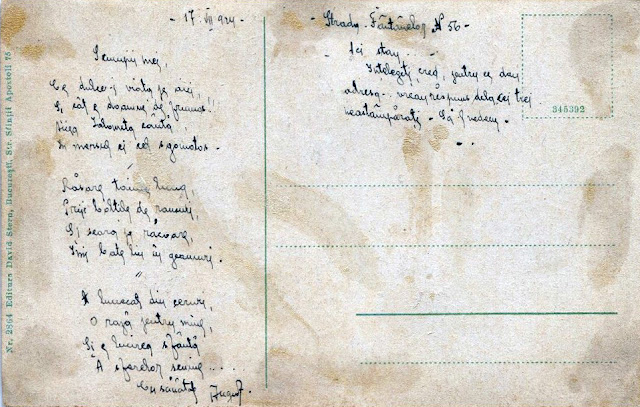 - 17 VII 924 -
Scumpii mei,
Ce dulce-i viața pe aici,
Și cât e doamne de frumos!!
Lunga Ialomița cântă,
În mersul ei cel sgomotos.
Răsare luna
Prin bolțile de ramuri,
Și seara pe răcoare,
Îmi bate lin în geamuri.
"
A lunecat din ceruri,
O rază pentru mine,
Și e lucirea sfântă
A sferelor senine....
Cu sănătate
August.
- Strada Fântânelor No 56 -
Aci stau..
Înțelegeți cred, pentru ce dau
adresa.. vreau răspuns dela cei trei
neastâmpărați. Să-l vedem.
...
345392
Nr. 2864 Editura David Stern, București, Str. Sfinții Apostoli 75